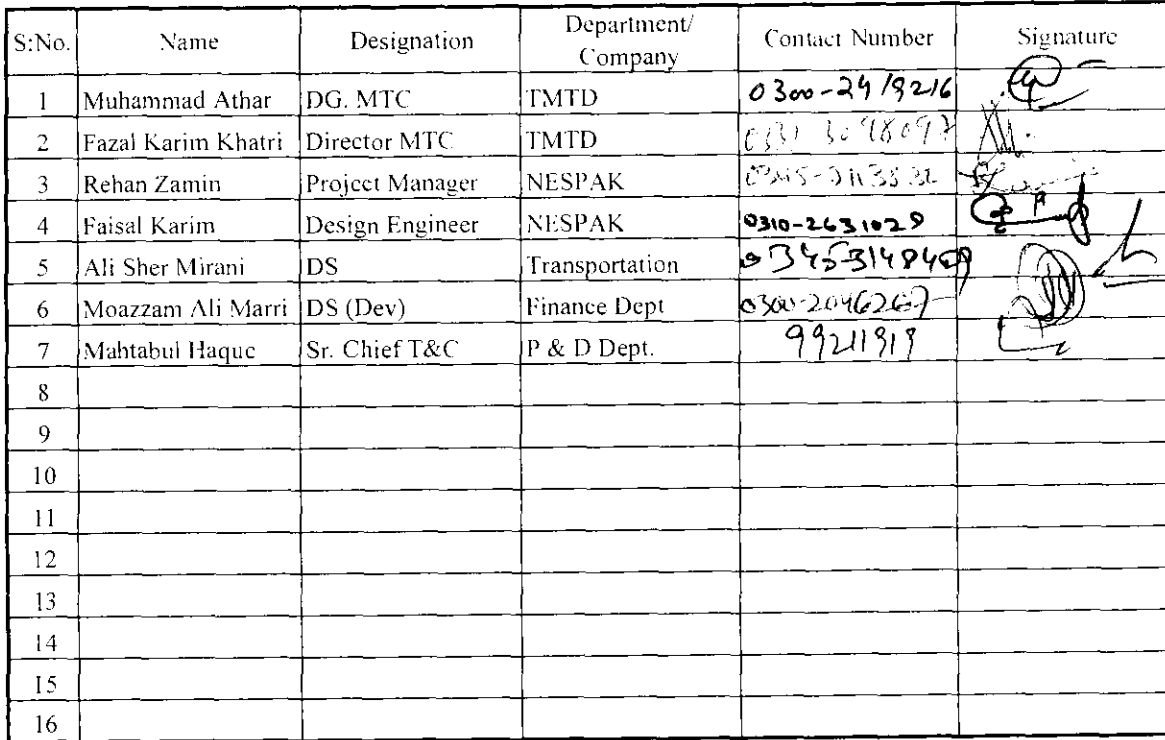 S:No. Name Designation Department/ Company Contact Number Signature
1 Muhammad Athar DG. MTC TMTD 0300-2419216
2 Fazal Karim Khatri Director MTC TMTD
3 Rehan Zamin Project Manager NESPAK
4 Faisal Karim Design Engineer NESPAK 0310-2631029
5 Ali Sher Mirani DS Transportation 03453148409
6 Moazzam Ali Marri DS (Dev) Finance Dept 0300-2046267
7 Mahtabul Haque Sr. Chief T&C P & D Dept. 99211919
8
9
10
11
12
13
14
15
16